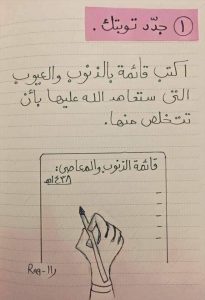 ١ جدّد توبتك .
اكتب قائمة بالذنوب والعيوب
التي ستعاهد الله عليها بأن
تتخلص منها.
قائمة الذنوب والمعاصي:
١٤٣٨هـ